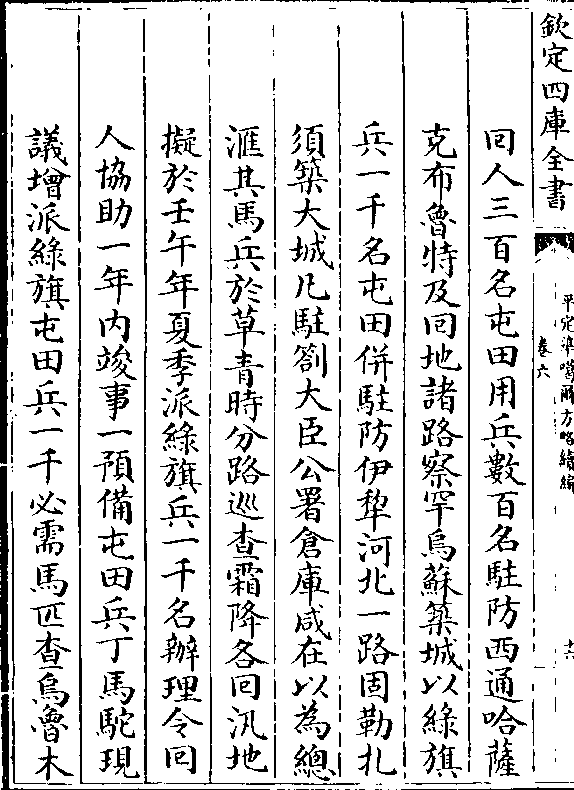 欽定四庫全書
平定準噶爾方略續編
卷六
十六
回人三百名屯田用兵數百名駐防西通哈薩
克布魯特及回地諸路察罕烏蘇築城以綠旗
兵一千名屯田併駐防伊犂河北一路固勒扎
須築大城凡駐劄大臣公署倉庫咸在以為總
滙其馬兵於草青時分路巡查霜降各回汛地
擬於壬午年夏季派綠旗兵一千名辦理令回
人協助一年内竣事一預備屯田兵丁馬駝現
議增派綠旗屯田兵一千必需馬匹查烏魯木